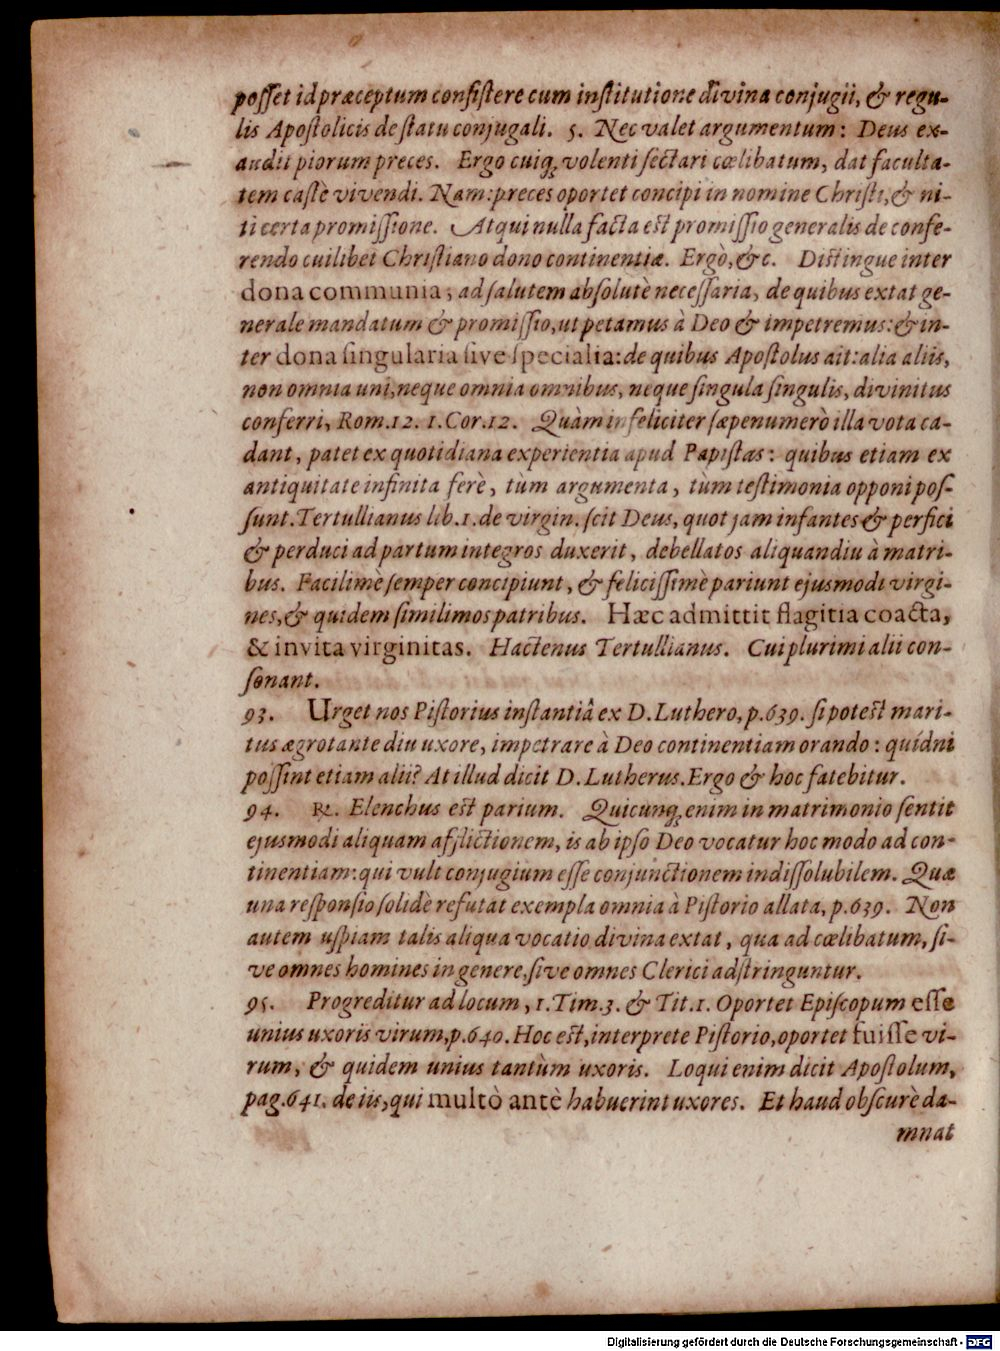 posſet id præceptum conſiſtere cum inſtitutione divina conjugii, & regu-
lis Apoſtolicis de ſtatu conjugali. 5. Nec valet argumentum: Deus ex-
audit piorum preces. Ergo cuiq; volenti ſectari cœlibatum, dat faculta-
tem caſtè vivendi. Nam: preces oportet concipi in nomine Chriſti, & ni-
ti certa promiſſione. Atqui nulla facta eſt promiſſio generalis de confe-
rendo cuilibet Chriſtiano dono continentiæ. Ergò, &c. Diſtingue inter
dona communia; ad ſalutem abſolutè neceſſaria, de quibus extat ge-
nerale mandatum & promiſſio, ut petamus à Deo & impetremus: & in-
ter dona ſingularia ſive ſpecialia: de quibus Apoſtolus ait: alia aliis,
non omnia uni, neque omnia omnibus, neque ſingula ſingulis, divinitus
conferri, Rom. 12. 1. Cor. 12. Quàm infeliciter ſæpenumerò illa vota ca-
dant, patet ex quotidiana experientia apud Papiſtas: quibus etiam ex
antiquitate infinita ferè, tùm argumenta, tùm teſtimonia opponi poſ-
ſunt. Tertullianus lib. 1. de virgin. ſcit Deus, quot jam infantes & perfici
& perduci ad partum integros duxerit, debellatos aliquandiu à matri-
bus. Facilimè ſemper concipiunt, & feliciſſimè pariunt ejusmodi virgi-
nes, & quidem ſimilimos patribus. Hæc admittit flagitia coacta,
& invita virginitas. Hactenus Tertullianus. Cui plurimi alii con-
ſonant.
93. Urget nos Piſtorius inſtantiâ ex D. Luthero, p. 639. ſi poteſt mari-
tus ægrotante diu uxore, impetrare à Deo continentiam orando: quídni
poſſint etiam alii? At illud dicit D. Lutherus. Ergo & hoc fatebitur.
94. ℞. Elenchus eſt parium. Quicunq; enim in matrimonio ſentit
ejusmodi aliquam afflictionem, is ab ipſo Deo vocatur hoc modo ad con-
tinentiam: qui vult conjugium eſſe conjunctionem indiſſolubilem. Quæ
una reſponſio ſolidè refutat exempla omnia à Piſtorio allata, p. 639. Non
autem uſpiam talis aliqua vocatio divina extat, qua ad cœlibatum, ſi-
ve omnes homines in genere, ſive omnes Clerici adſtringuntur.
95. Progreditur ad locum, 1. Tim. 3. & Tit. 1. Oportet Epiſcopum eſſe
unius uxoris virum, p. 640. Hoc eſt, interprete Piſtorio, oportet fuiſſe vi-
rum, & quidem unius tantùm uxoris. Loqui enim dicit Apoſtolum,
pag. 641. de iis, qui multò antè habuerint uxores. Et haud obſcurè da-
mnat
Digitalisierung gefördert durch die Deutsche Forschungsgemeinschaft - DFG